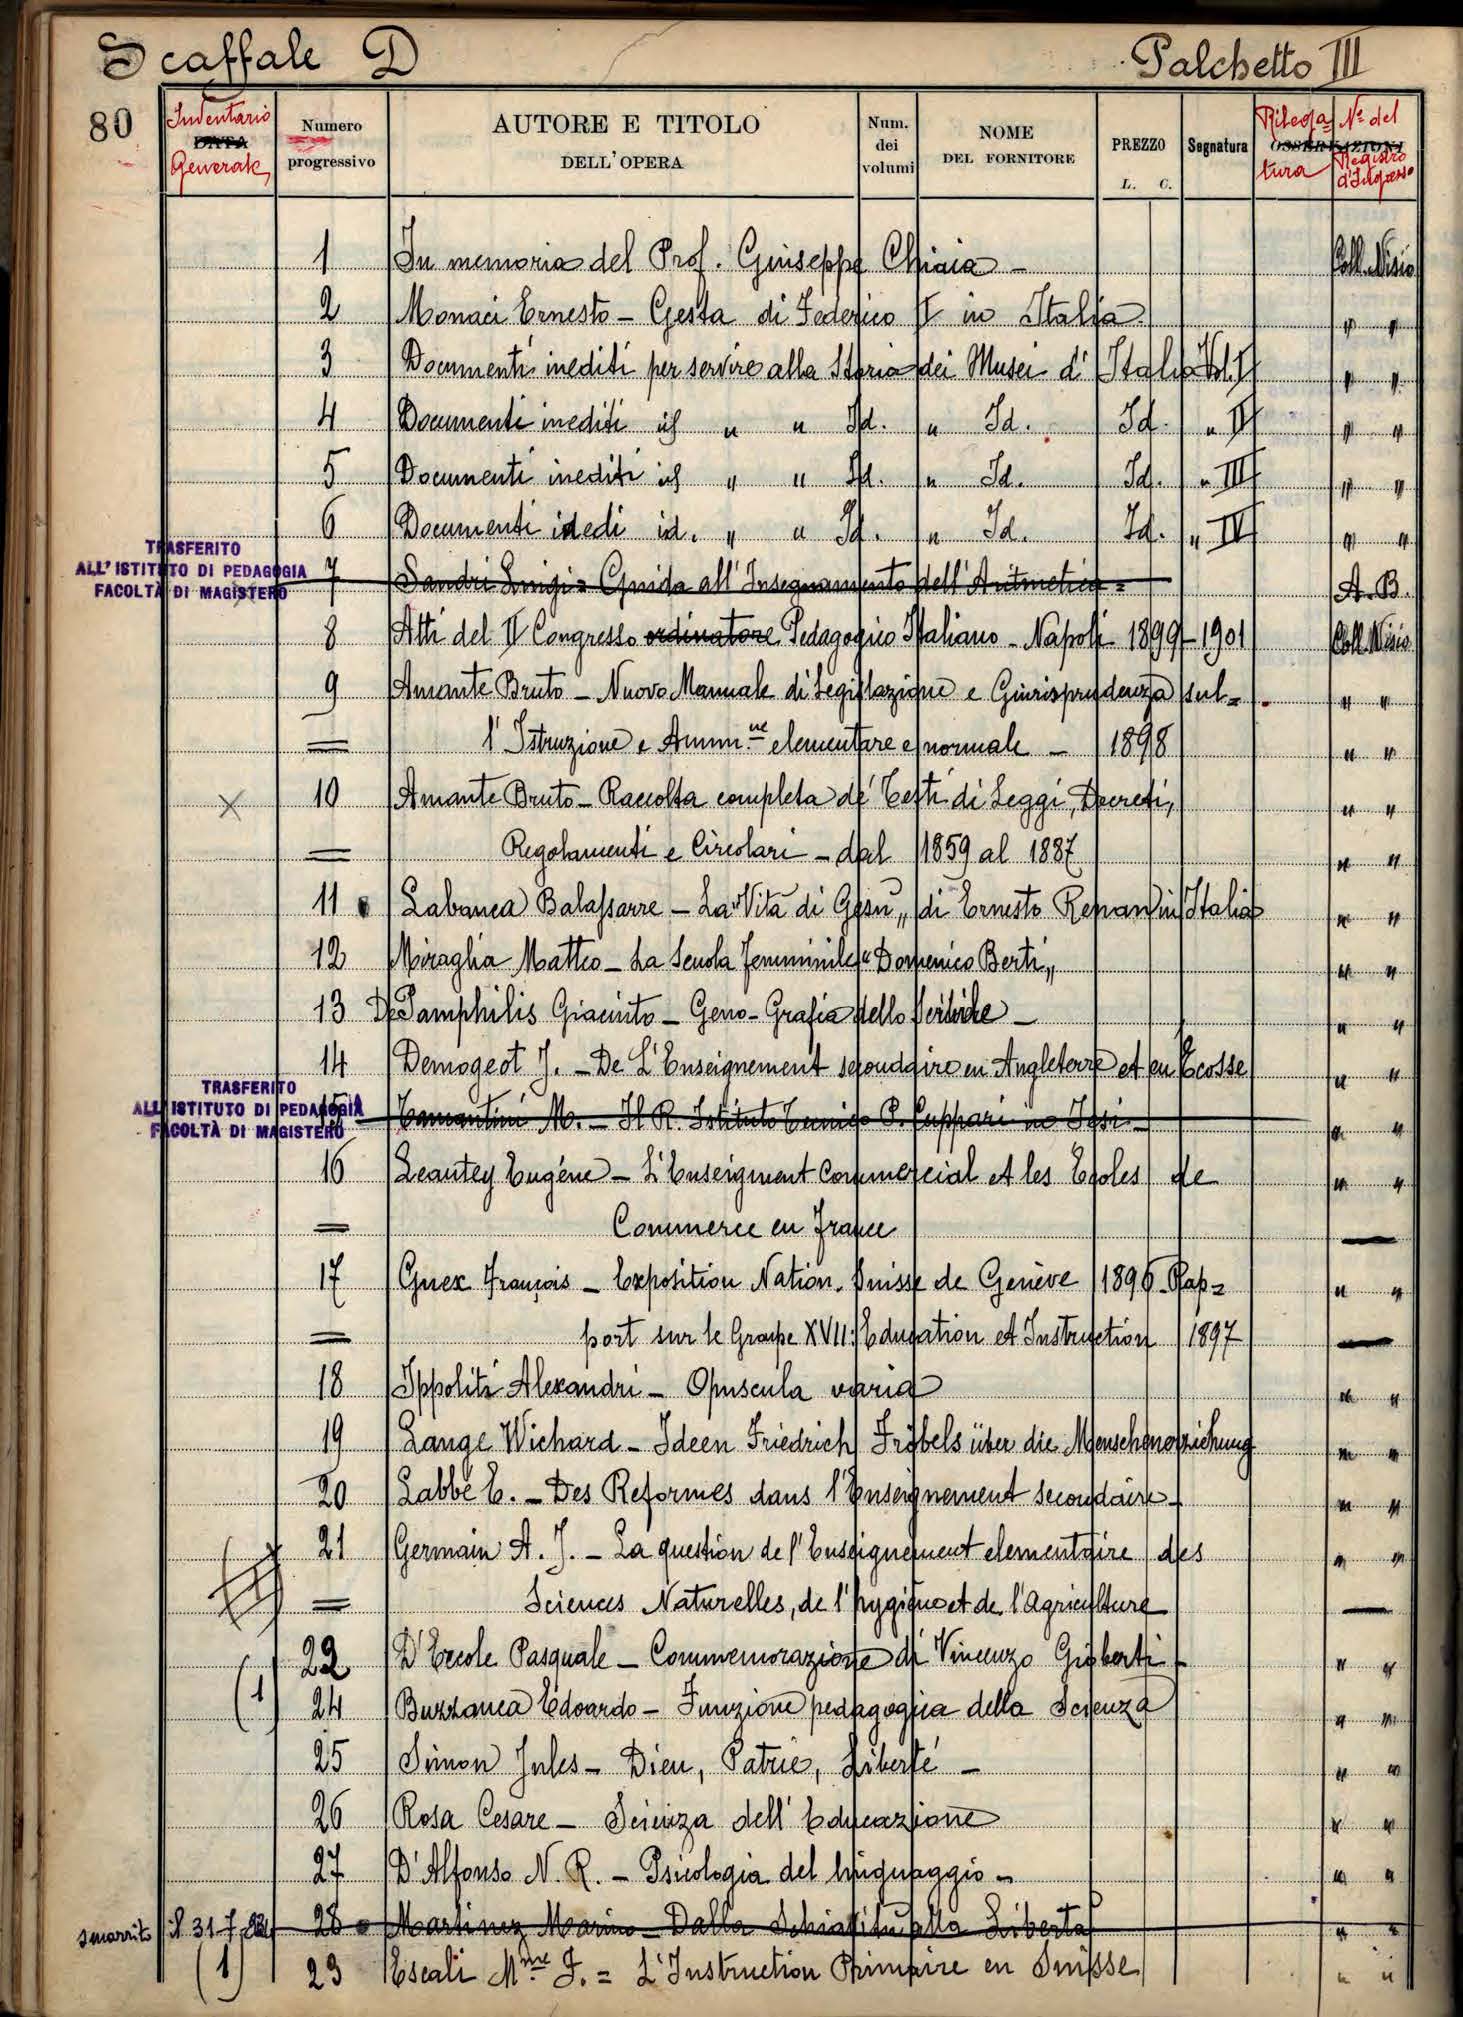 Scaffale D Palchetto III
80
Inventario Generale DATA
Numero progressivo
AUTORE E TITOLO DELL'OPERA
Num. dei volumi
NOME DEL FORNITORE
PREZZO L. C.
Segnatura
Rilegatura OSSERVAZIONI
N° del Registro d'Ingresso
1 In memoria del Prof. Giuseppe Chiaia – Coll. Nisio
2 Monaci Ernesto – Gesta di Federico I in Italia. " "
3 Documenti inediti per servire alla Storia dei Musei d'Italia Vol. I " "
4 Documenti inediti id " " Id. " Id. Id. " II " "
5 Documenti inediti id " " Id. " Id. Id. " III " "
6 Documenti inedi id. " " Id. " Id. Id. " IV " "
TRASFERITO
ALL'ISTITUTO DI PEDAGOGIA
FACOLTÀ DI MAGISTERO
7 Sandri Luigi = Guida all'Insegnamento dell'Aritmetica = A. B.
8 Atti del II Congresso ordinatore Pedagogico Italiano – Napoli 1899–1901 Coll. Nisio
9 Amante Bruto – Nuovo Manuale di Legislazione e Giurisprudenza sul= " "
= l'Istruzione e Amm.ne elementare e normale – 1898 " "
X 10 Amante Bruto – Raccolta completa de' Testi di Leggi, Decreti, " "
= Regolamenti e Circolari – dal 1859 al 1887 " "
11 Labanca Balassarre – La "Vita di Gesù" di Ernesto Renan in Italia " "
12 Miraglia Matteo – La Scuola femminile "Domenico Berti" " "
13 De Pamphilis Giacinto – Geno-Grafia dello " "
14 Demogeot J. – De L'Enseignement secondaire en Angleterre et en Ecosse " "
TRASFERITO
ALL'ISTITUTO DI PEDAGOGIA
FACOLTÀ DI MAGISTERO
15 M. – Il R. Istituto Tecnico P. Cuppari in Jesi – " "
16 Leautey Eugéne – L'Enseigment Commercial et les Ecoles de " "
= Commerce en France —
17 Guex François – Exposition Nation. Suisse de Genève 1896 – Rap= " "
= port sur le Groupe XVII: Education et Instruction 1897 —
18 Ippoliti Alexandri – Opuscula varia " "
19 Lange Wichard – Ideen Friedrich Fröbels über die Menschenerziehung " "
20 Labbé E. – Des Reformes dans l'Enseignement secondaire – " "
21 Germain A. J. – La question de l'Enseignement elementaire des " "
= Sciences Naturelles, de l'hygiène et de l'Agriculture —
22 D'Ercole Pasquale – Commemorazione di Vincenzo Gioberti – " "
(1) 24 Buzzanca Edoardo – Funzione pedagogica della Scienza " "
25 Simon Jules – Dieu, Patrie, Liberté – " "
26 Rosa Cesare – Scienza dell'Educazione " "
27 D'Alfonso N. R. – Psicologia del linguaggio – " "
smarrito 28 Martinez Marino – Dalla Schiavitù alla Libertà " "
(1) 23 Escali Mme F. = L'Instruction Primaire en Suisse " "